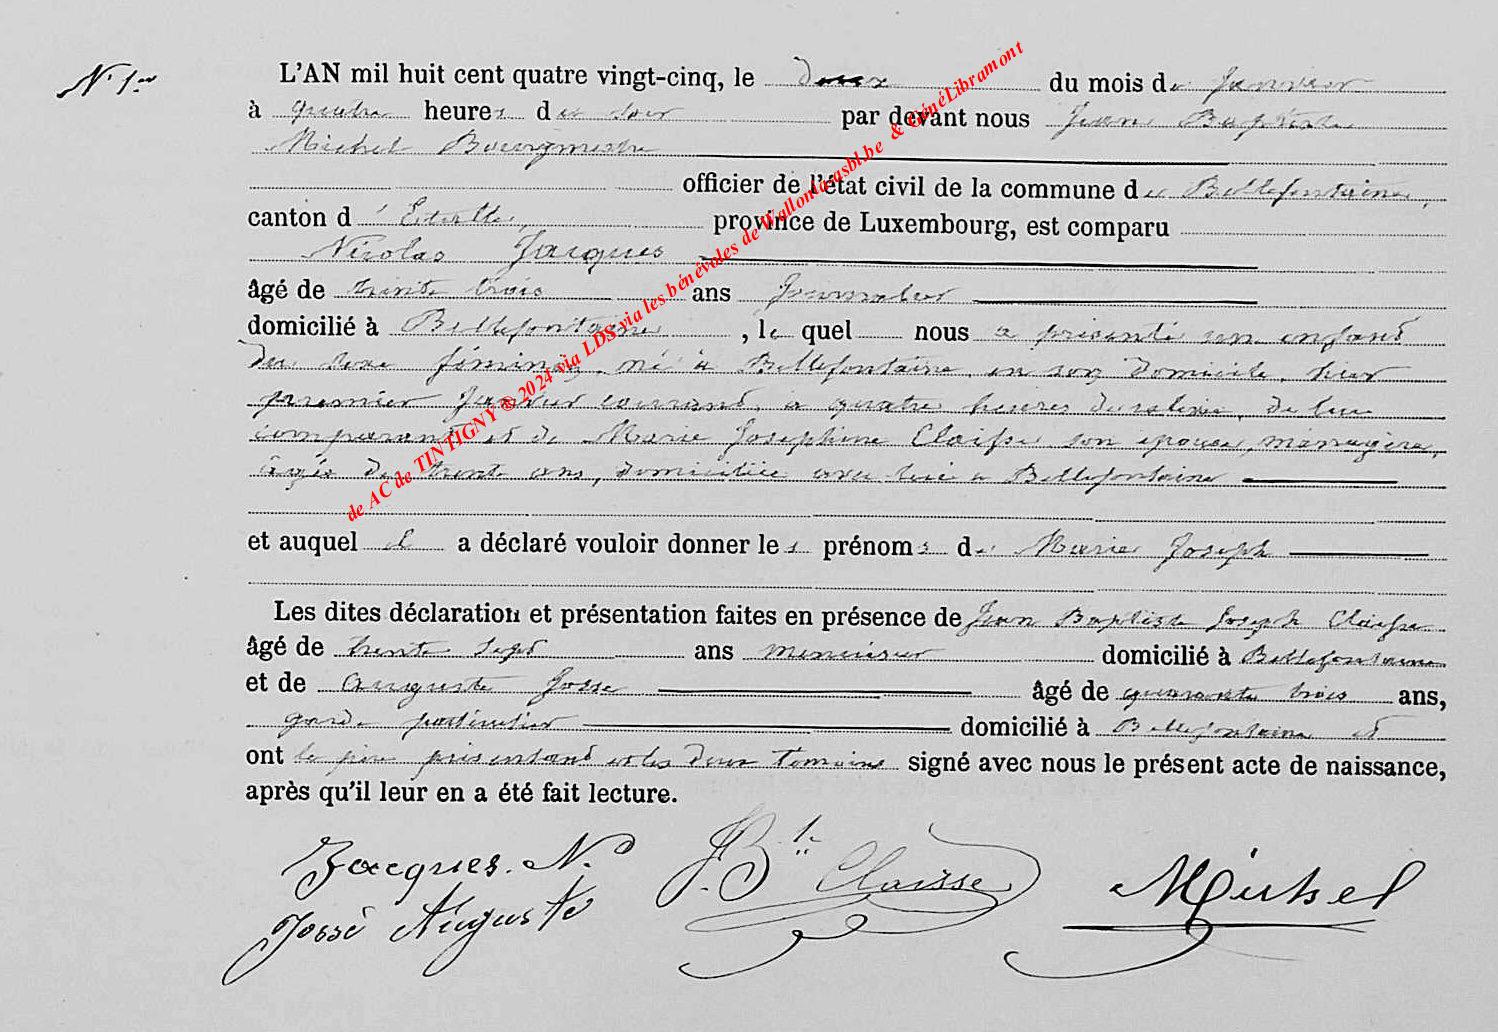 N° 1er
L'AN mil huit cent quatre vingt-cinq, le deux du mois de Janvier
à quatre heures du soir par devant nous Jean Baptiste
Michel Bourgmestre
officier de l'état civil de la commune de Bellefontaine,
canton d'Etalle, province de Luxembourg, est comparu
Nicolas Jacques
âgé de trente trois ans Journalier
domicilié à Bellefontaine, lequel nous a présenté un enfant
du sexe féminin, né à Bellefontaine, en son domicile, hier
premier Janvier courant, à quatre heures du, de lui
comparant et de Marie Josephine Claisse son épouse, ménagère,
âgée de trente ans, domiciliée avec lui à Bellefontaine
et auquel il a déclaré vouloir donner les prénoms de Marie Joseph
Les dites déclaration et présentation faites en présence de Jean Baptiste Joseph Claisse
âgé de trente sept ans menuisier domicilié à Bellefontaine
et de Auguste Josse âgé de quarante trois ans,
garde particulier domicilié à Bellefontaine et
ont le père présentant et les deux témoins signé avec nous le présent acte de naissance,
après qu'il leur en a été fait lecture.
Jacques. N.
J. Bte Claisse
Michel
Josse Auguste
de AC de TINTIGNY ® 2024 via LDS via les bénévoles de Wallonia asbl.be & GénéLibramont